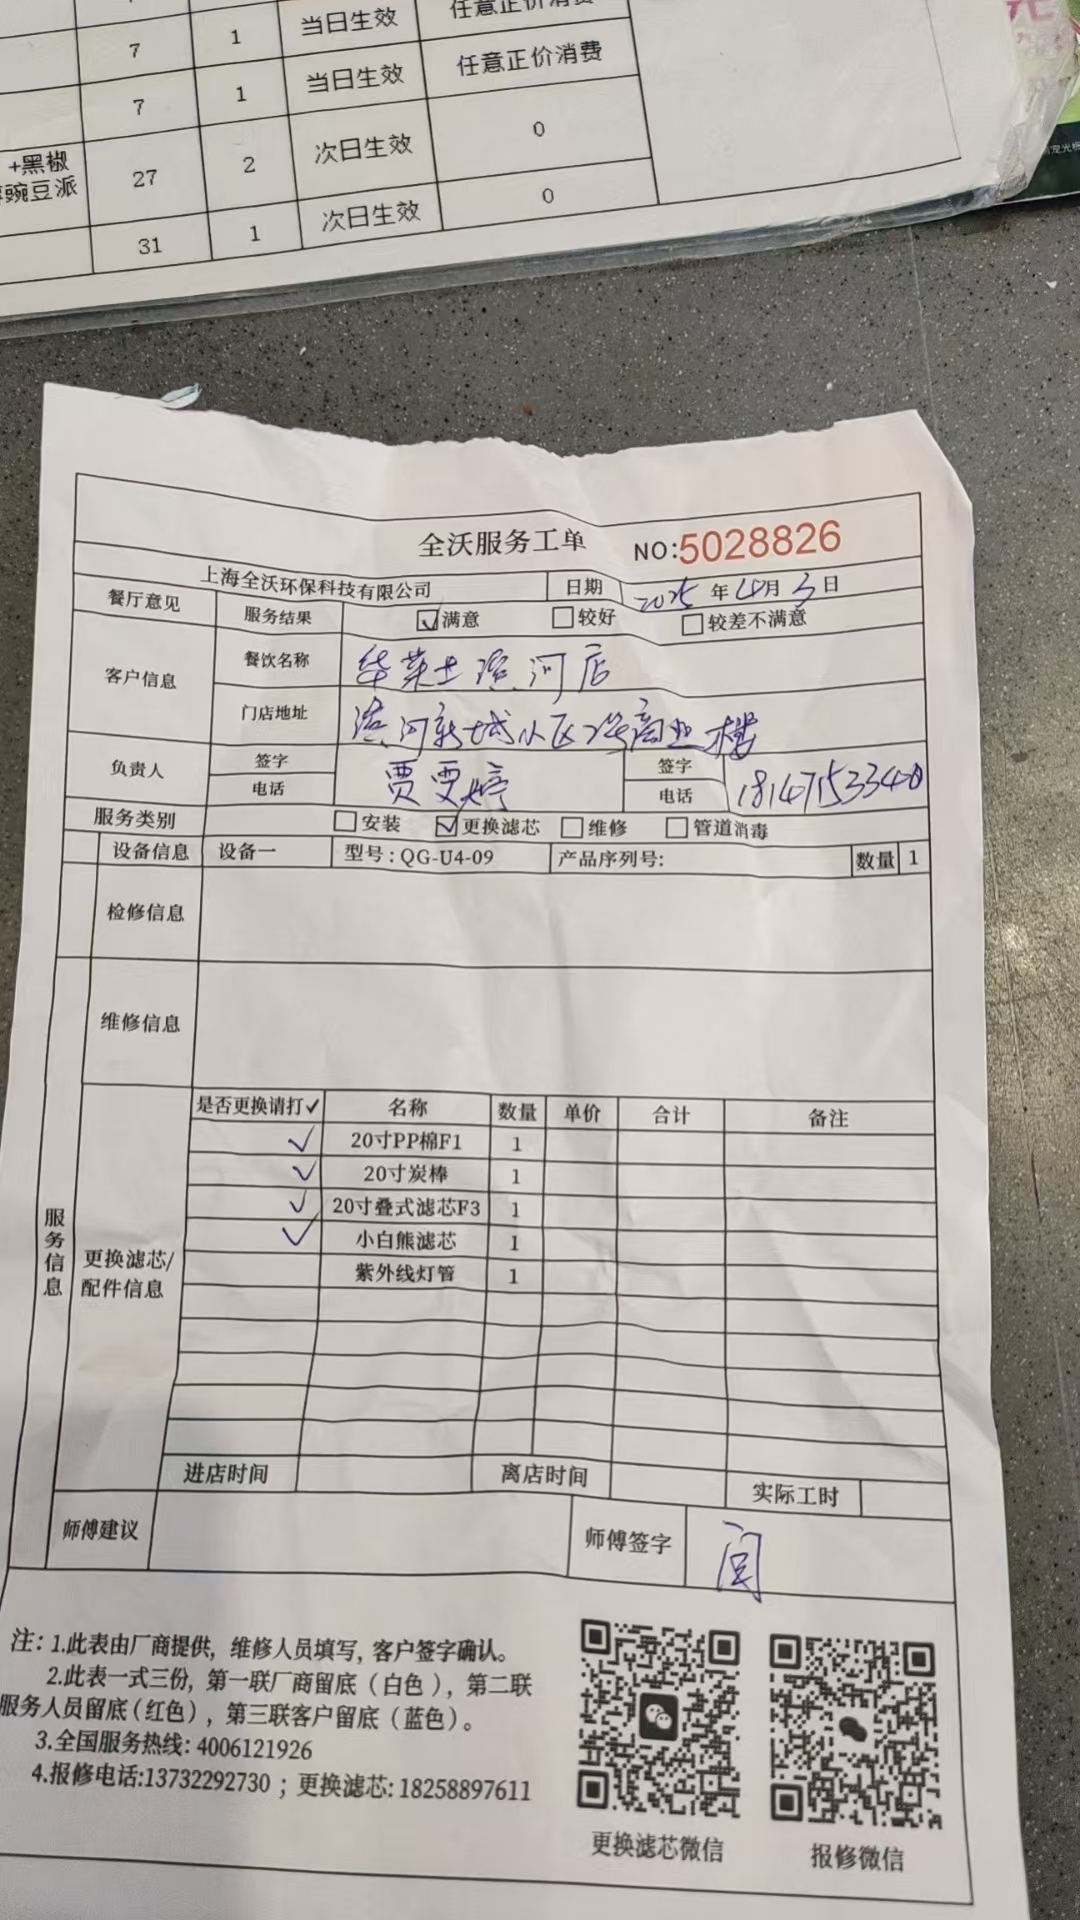 7 1 当日生效 任意正价消费
7 1 当日生效 任意正价消费
+黑椒
豌豆派 27 2 次日生效 0
31 1 次日生效 0
全沃服务工单 NO:5028826
上海全沃环保科技有限公司 日期 2025年4月3日
餐厅意见 服务结果 ☑满意 □较好 □较差不满意
客户信息 餐饮名称 华莱士滨河店
门店地址 滨河新城小区2号商业楼
负责人 签字 贾雯婷 签字
电话 电话 18147153340
服务类别 □安装 ☑更换滤芯 □维修 □管道消毒
设备信息 设备一 型号:QG-U4-09 产品序列号: 数量 1
检修信息
维修信息
服务信息
更换滤芯/
配件信息
是否更换请打✓ 名称 数量 单价 合计 备注
✓ 20寸PP棉F1 1
✓ 20寸炭棒 1
✓ 20寸叠式滤芯F3 1
✓ 小白熊滤芯 1
紫外线灯管 1
进店时间 离店时间 实际工时
师傅建议 师傅签字 闫
注: 1.此表由厂商提供, 维修人员填写, 客户签字确认。
2.此表一式三份, 第一联厂商留底(白色), 第二联
服务人员留底(红色), 第三联客户留底(蓝色)。
3.全国服务热线: 4006121926
4.报修电话:13732292730 ; 更换滤芯: 18258897611
更换滤芯微信 报修微信